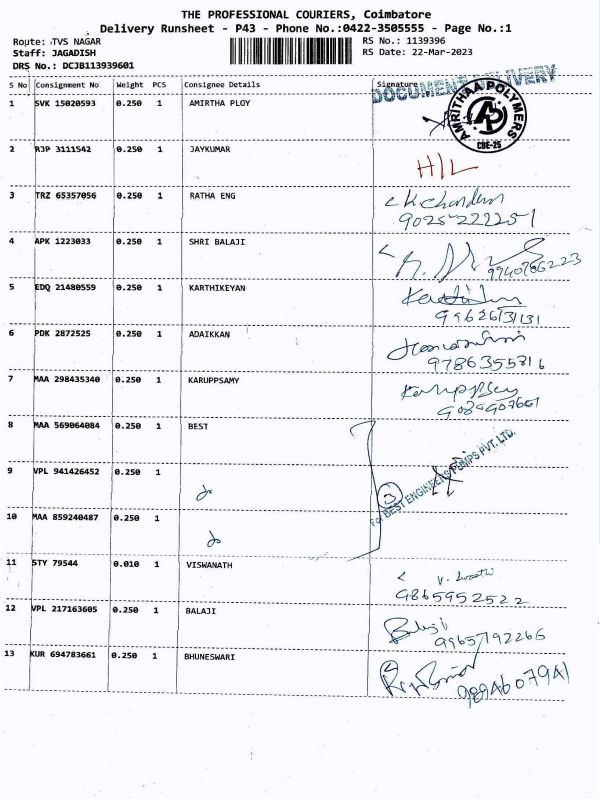 THE PROFESSIONAL COURIERS, Coimbatore
Delivery Runsheet - P43 - Phone No.:0422-3505555 - Page No.:1
Route: TVS NAGAR RS No.: 1139396
Staff: JAGADISH RS Date: 22-Mar-2023
DRS No.: DCJB113939601
S No Consignment No Weight PCS Consignee Details Signature
DOCUMENT DELIVERY
1 SVK 15020593 0.250 1 AMIRTHA PLOY
AMRITHAA POLYMERS
AP
CBE-25
2 RJP 3111542 0.250 1 JAYKUMAR
H/L
3 TRZ 65357056 0.250 1 RATHA ENG
9025222251
4 APK 1223033 0.250 1 SHRI BALAJI
5 EDQ 21480559 0.250 1 KARTHIKEYAN
9962613131
6 PDK 2872525 0.250 1 ADAIKKAN
9786355816
7 MAA 298435340 0.250 1 KARUPPSAMY
8 MAA 569064084 0.250 1 BEST
For BEST ENGINEERS PUMPS PVT. LTD.
3
9 VPL 941426452 0.250 1
do
10 MAA 859240487 0.250 1
do
11 STY 79544 0.010 1 VISWANATH
9865952522
12 VPL 217163605 0.250 1 BALAJI
Balaji
9965792266
13 KUR 694783661 0.250 1 BHUNESWARI
9894607941